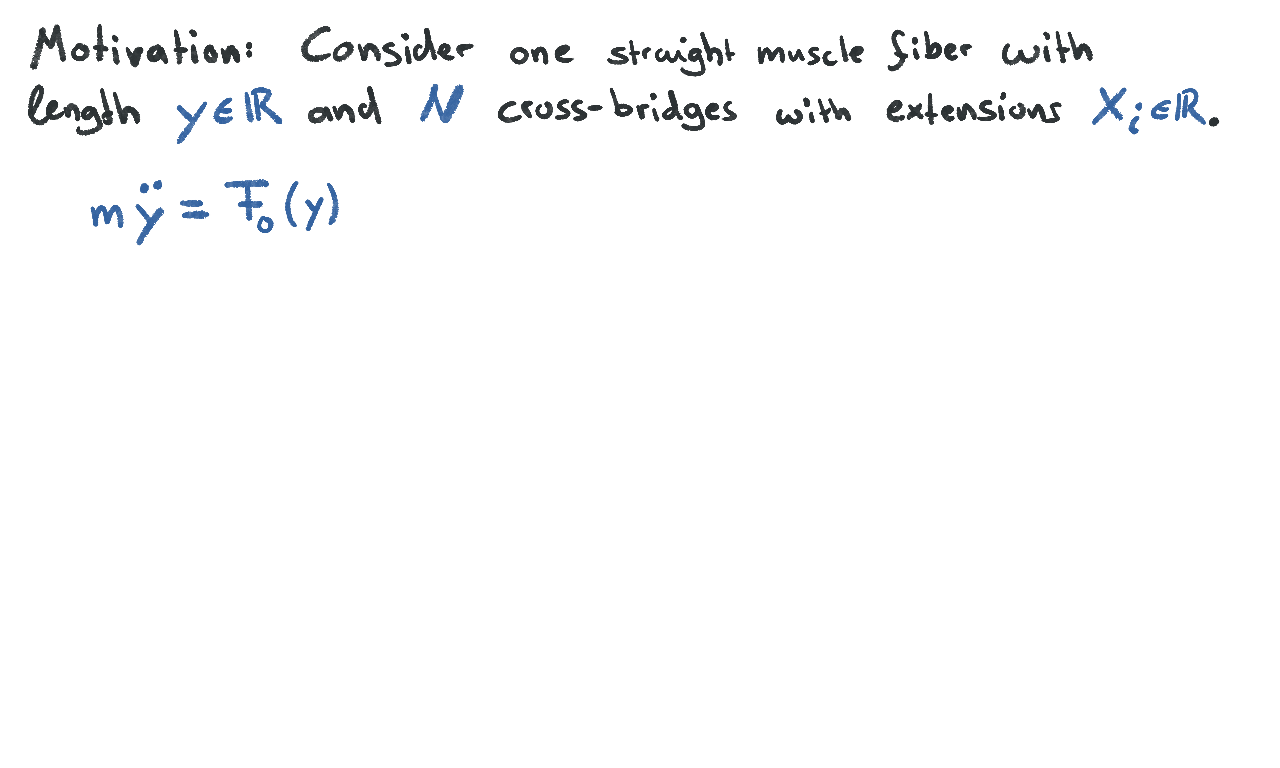 Motivation: Consider one straight muscle fiber with
length y ∈ ℝ and N cross-bridges with extensions Xᵢ ∈ ℝ.
m ÿ = F₀(y)